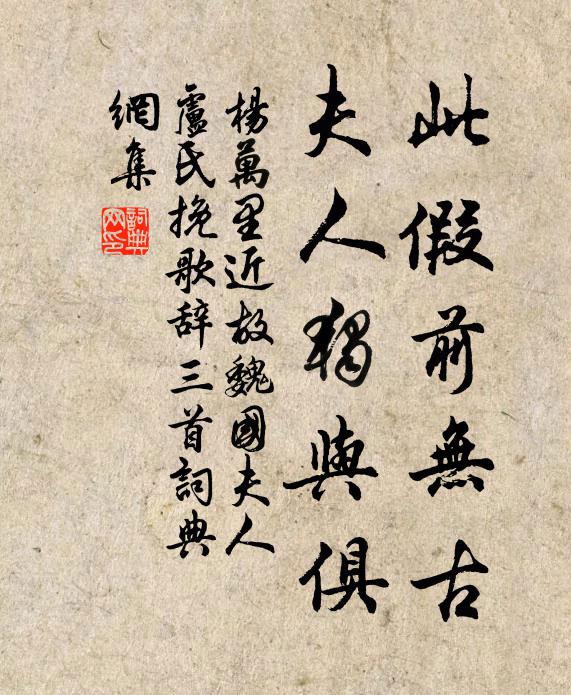 此假前無古
夫人獨與俱
楊萬里近故魏國夫人
盧氏挽歌辞三首詞典
網集
詞典
网印